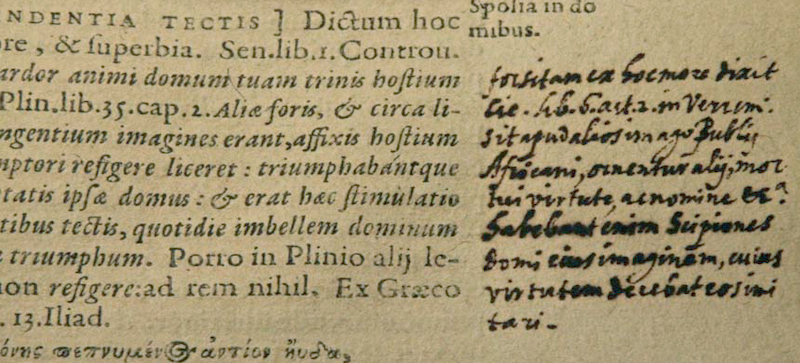 NDENTIA TECTIS ] Dictum hoc
ore, & superbia. Sen.lib.1.Controu.
ardor animi domum tuam trinis hostium
Plin.lib.35.cap.2. Aliæ foris, & circa li-
ngentium imagines erant, affixis hostium
mptori refigere liceret : triumphabántque
tatis ipsæ domus : & erat hæc stimulatio
tibus tectis, quotidie imbellem dominum
triumphum. Porro in Plinio alij le-
non refigere: ad rem nihil. Ex Græco
. 13.Iliad.
πεπνυμέν ἀντίον ηὔδα,
Spolia in do
mibus.
forsitam ex hoc more dixit
Cic. lib. 6. act. 2. in Verrem.
sit apud alios imago Publij
Africani, ornentur alij, mor
tui virtute, ac nomine &c.ª
habebant enim Scipiones
domi eius imaginem, cuius
virtutem decebat eos imi
tari.